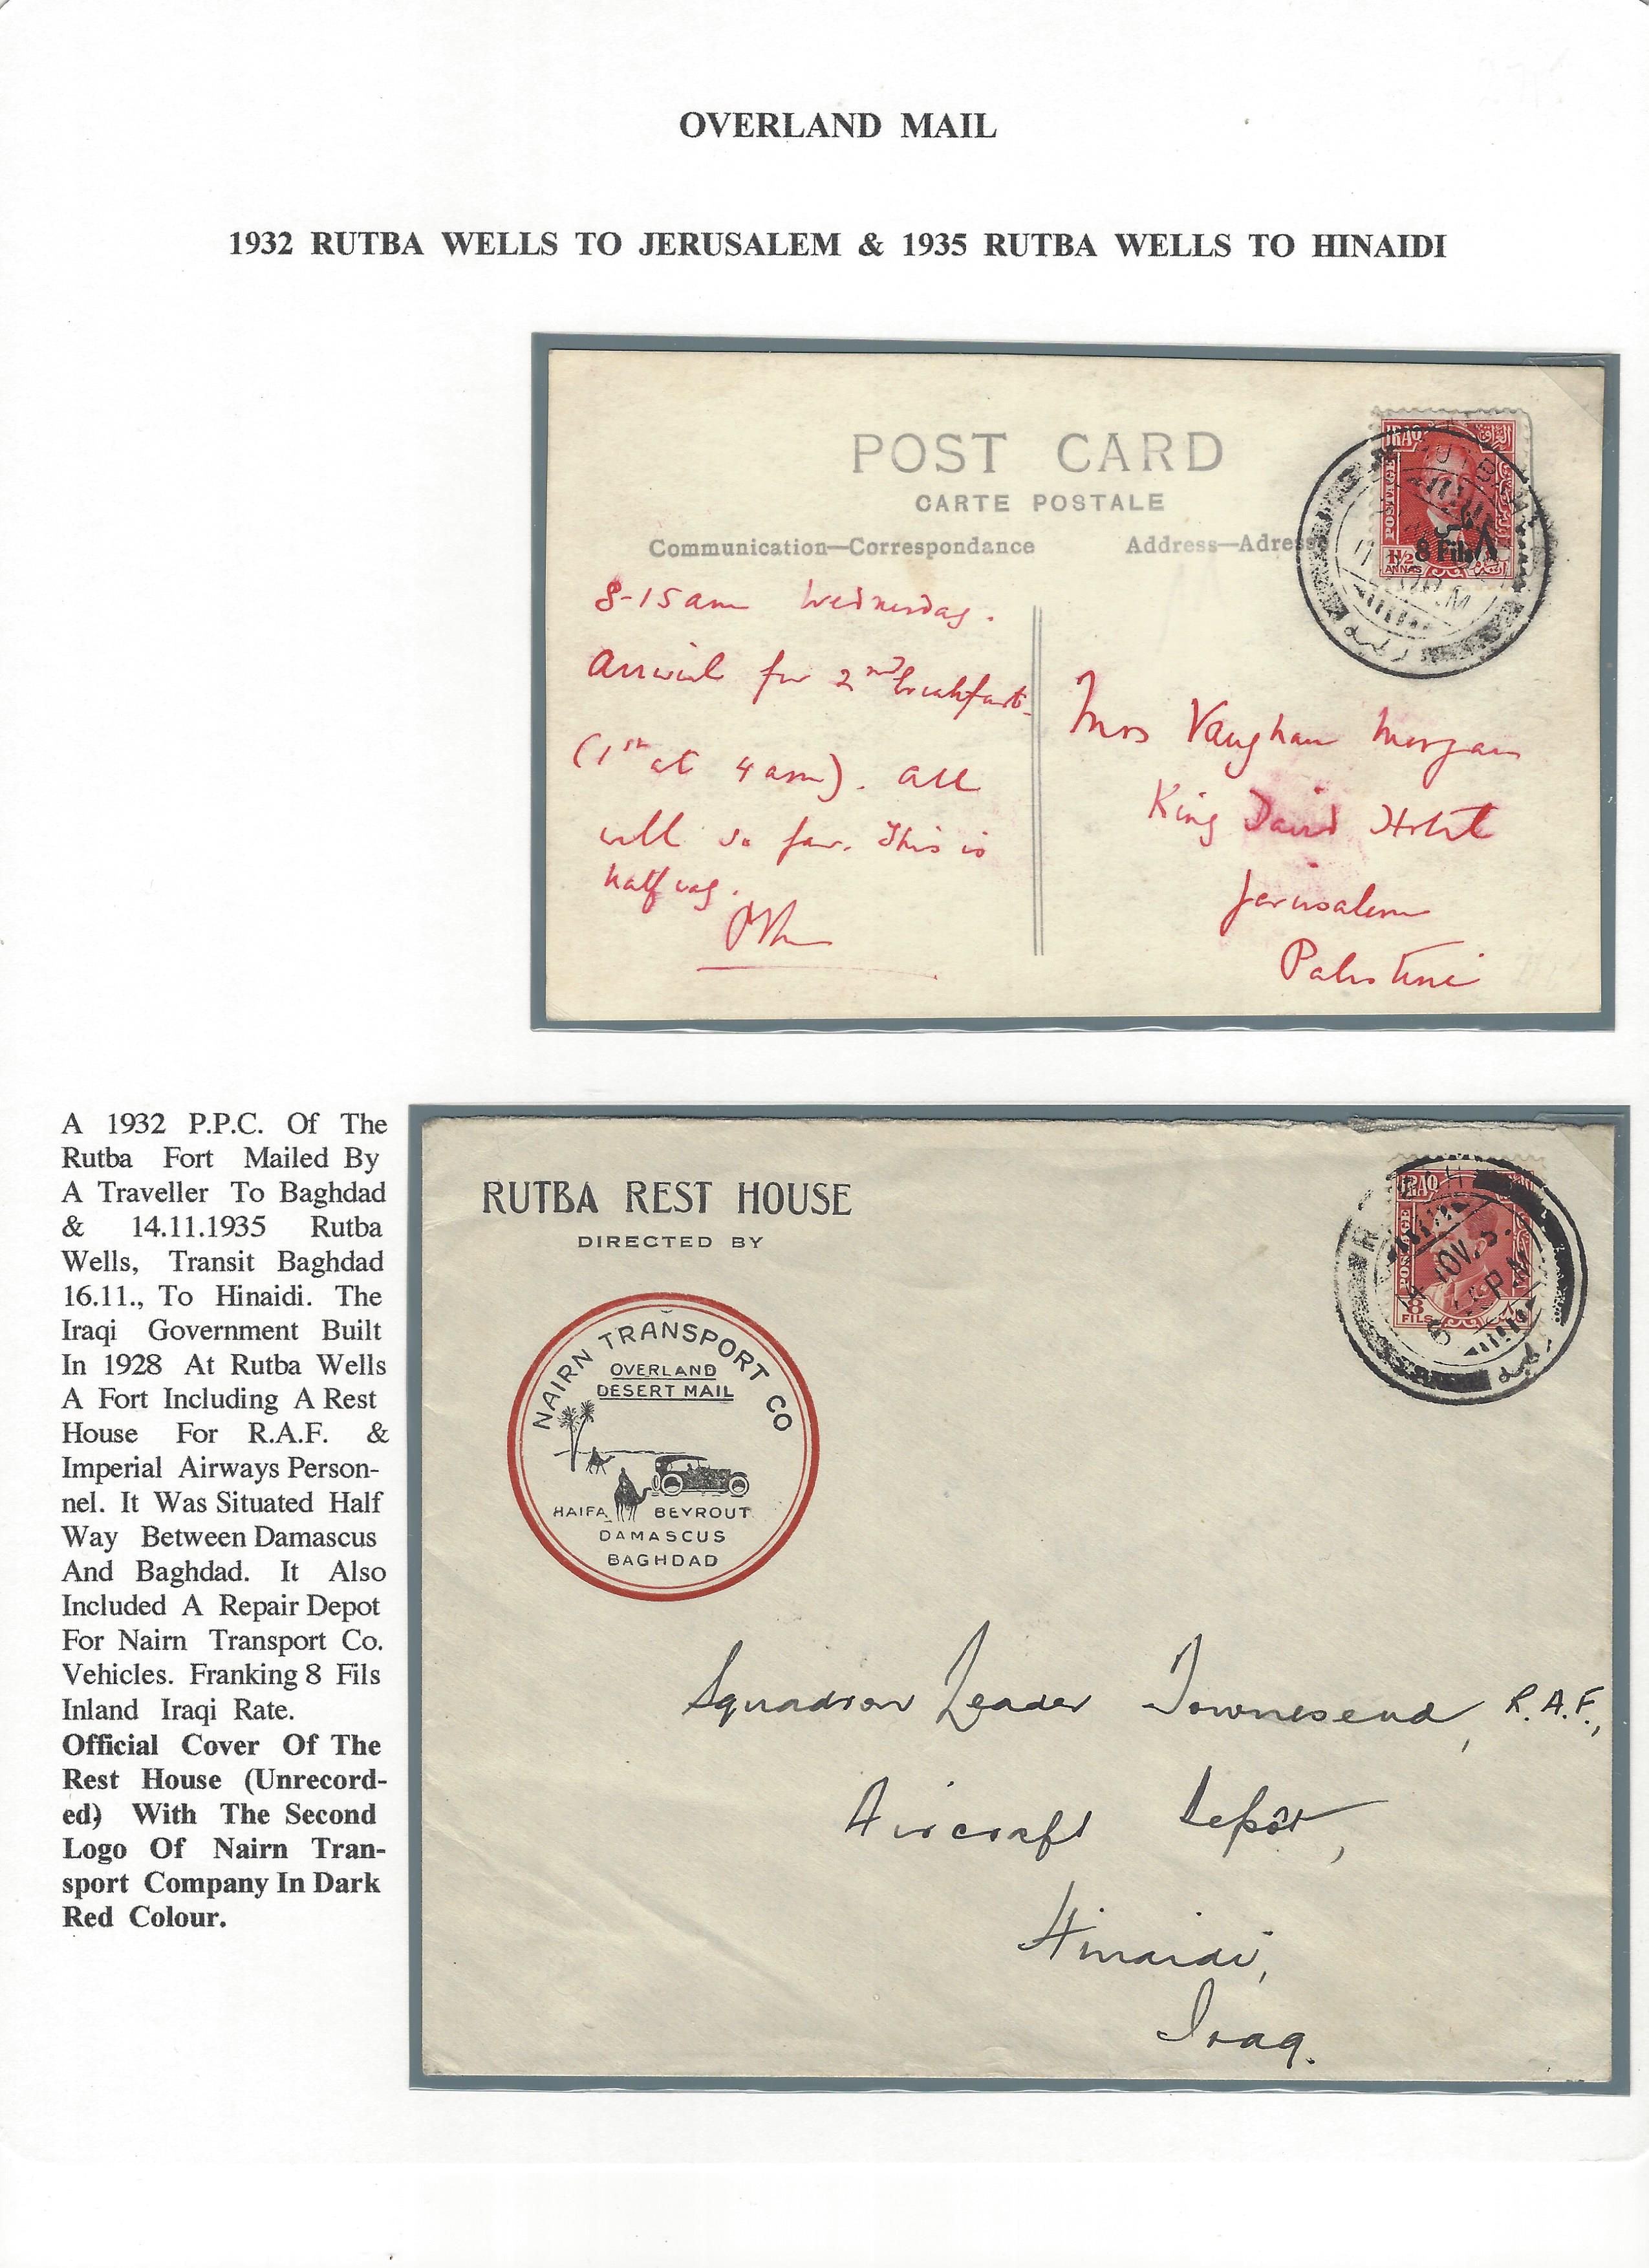 OVERLAND MAIL
1932 RUTBA WELLS TO JERUSALEM & 1935 RUTBA WELLS TO HINAIDI
POST CARD
CARTE POSTALE
Communication—Correspondance
Address—Adress
IRAQ
POSTAGE
8 Fils
1½
ANNAS
8-15am Wednesday.
Arrived for 2nd breakfast.
(1st at 4am). All
well so far. This is
half way.
Mrs Vaughan Morgan
King David Hotel
Jerusalem
Palestine
A 1932 P.P.C. Of The
Rutba Fort Mailed By
A Traveller To Baghdad
& 14.11.1935 Rutba
Wells, Transit Baghdad
16.11., To Hinaidi. The
Iraqi Government Built
In 1928 At Rutba Wells
A Fort Including A Rest
House For R.A.F. &
Imperial Airways Person-
nel. It Was Situated Half
Way Between Damascus
And Baghdad. It Also
Included A Repair Depot
For Nairn Transport Co.
Vehicles. Franking 8 Fils
Inland Iraqi Rate.
Official Cover Of The
Rest House (Unrecord-
ed) With The Second
Logo Of Nairn Tran-
sport Company In Dark
Red Colour.
RUTBA REST HOUSE
DIRECTED BY
NAIRN TRANSPORT CO
OVERLAND
DESERT MAIL
HAIFA BEYROUT
DAMASCUS
BAGHDAD
IRAQ
POSTAGE
8
FILS
Squadron Leader Townesend, R.A.F.,
Aircraft Depôt,
Hinaidi,
Iraq.